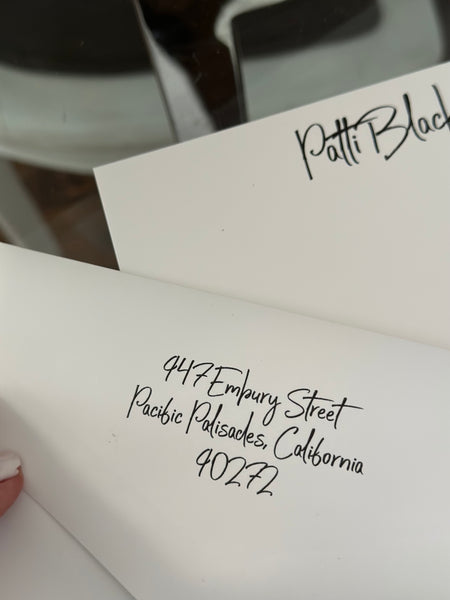 Patti Black
947 Embury Street
Pacific Palisades, California
90272